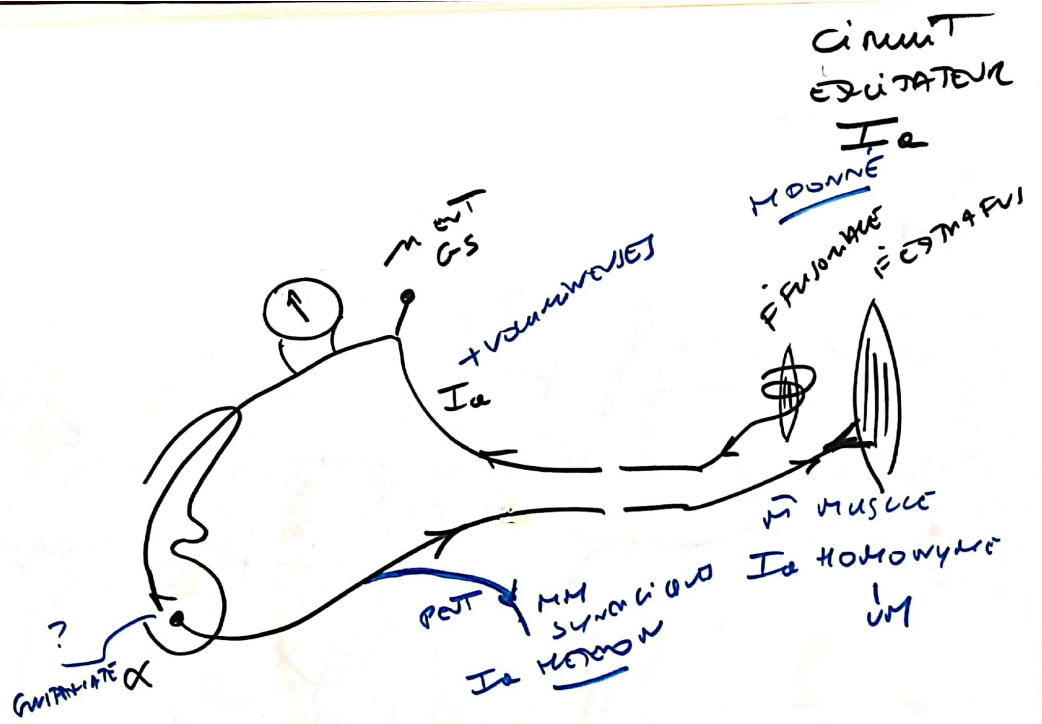 CIRCUIT
EXCITATEUR
Ia
MDONNÉ
ENT
GS
+ VOLUMINEUSES
F FUSORIALE
F EXTRAFUS
Ia
M̄ MUSCLE
Ia HOMONYME
UM
PEUT
MM
Ia
?
GLUTAMATE
α